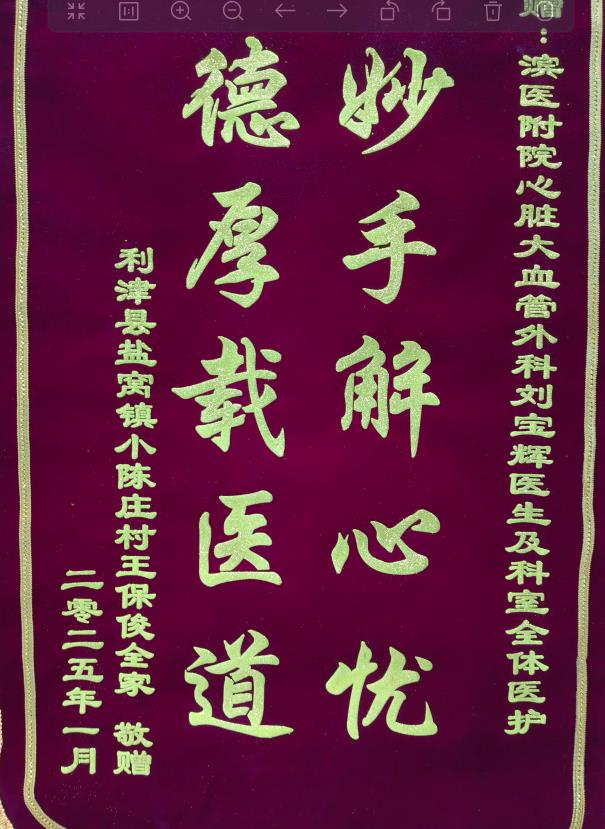 赠：滨医附院心脏大血管外科刘宝辉医生及科室全体医护
妙手解心忧
德厚载医道
利津县盐窝镇小陈庄村王保俊全家 敬赠
二零二五年一月